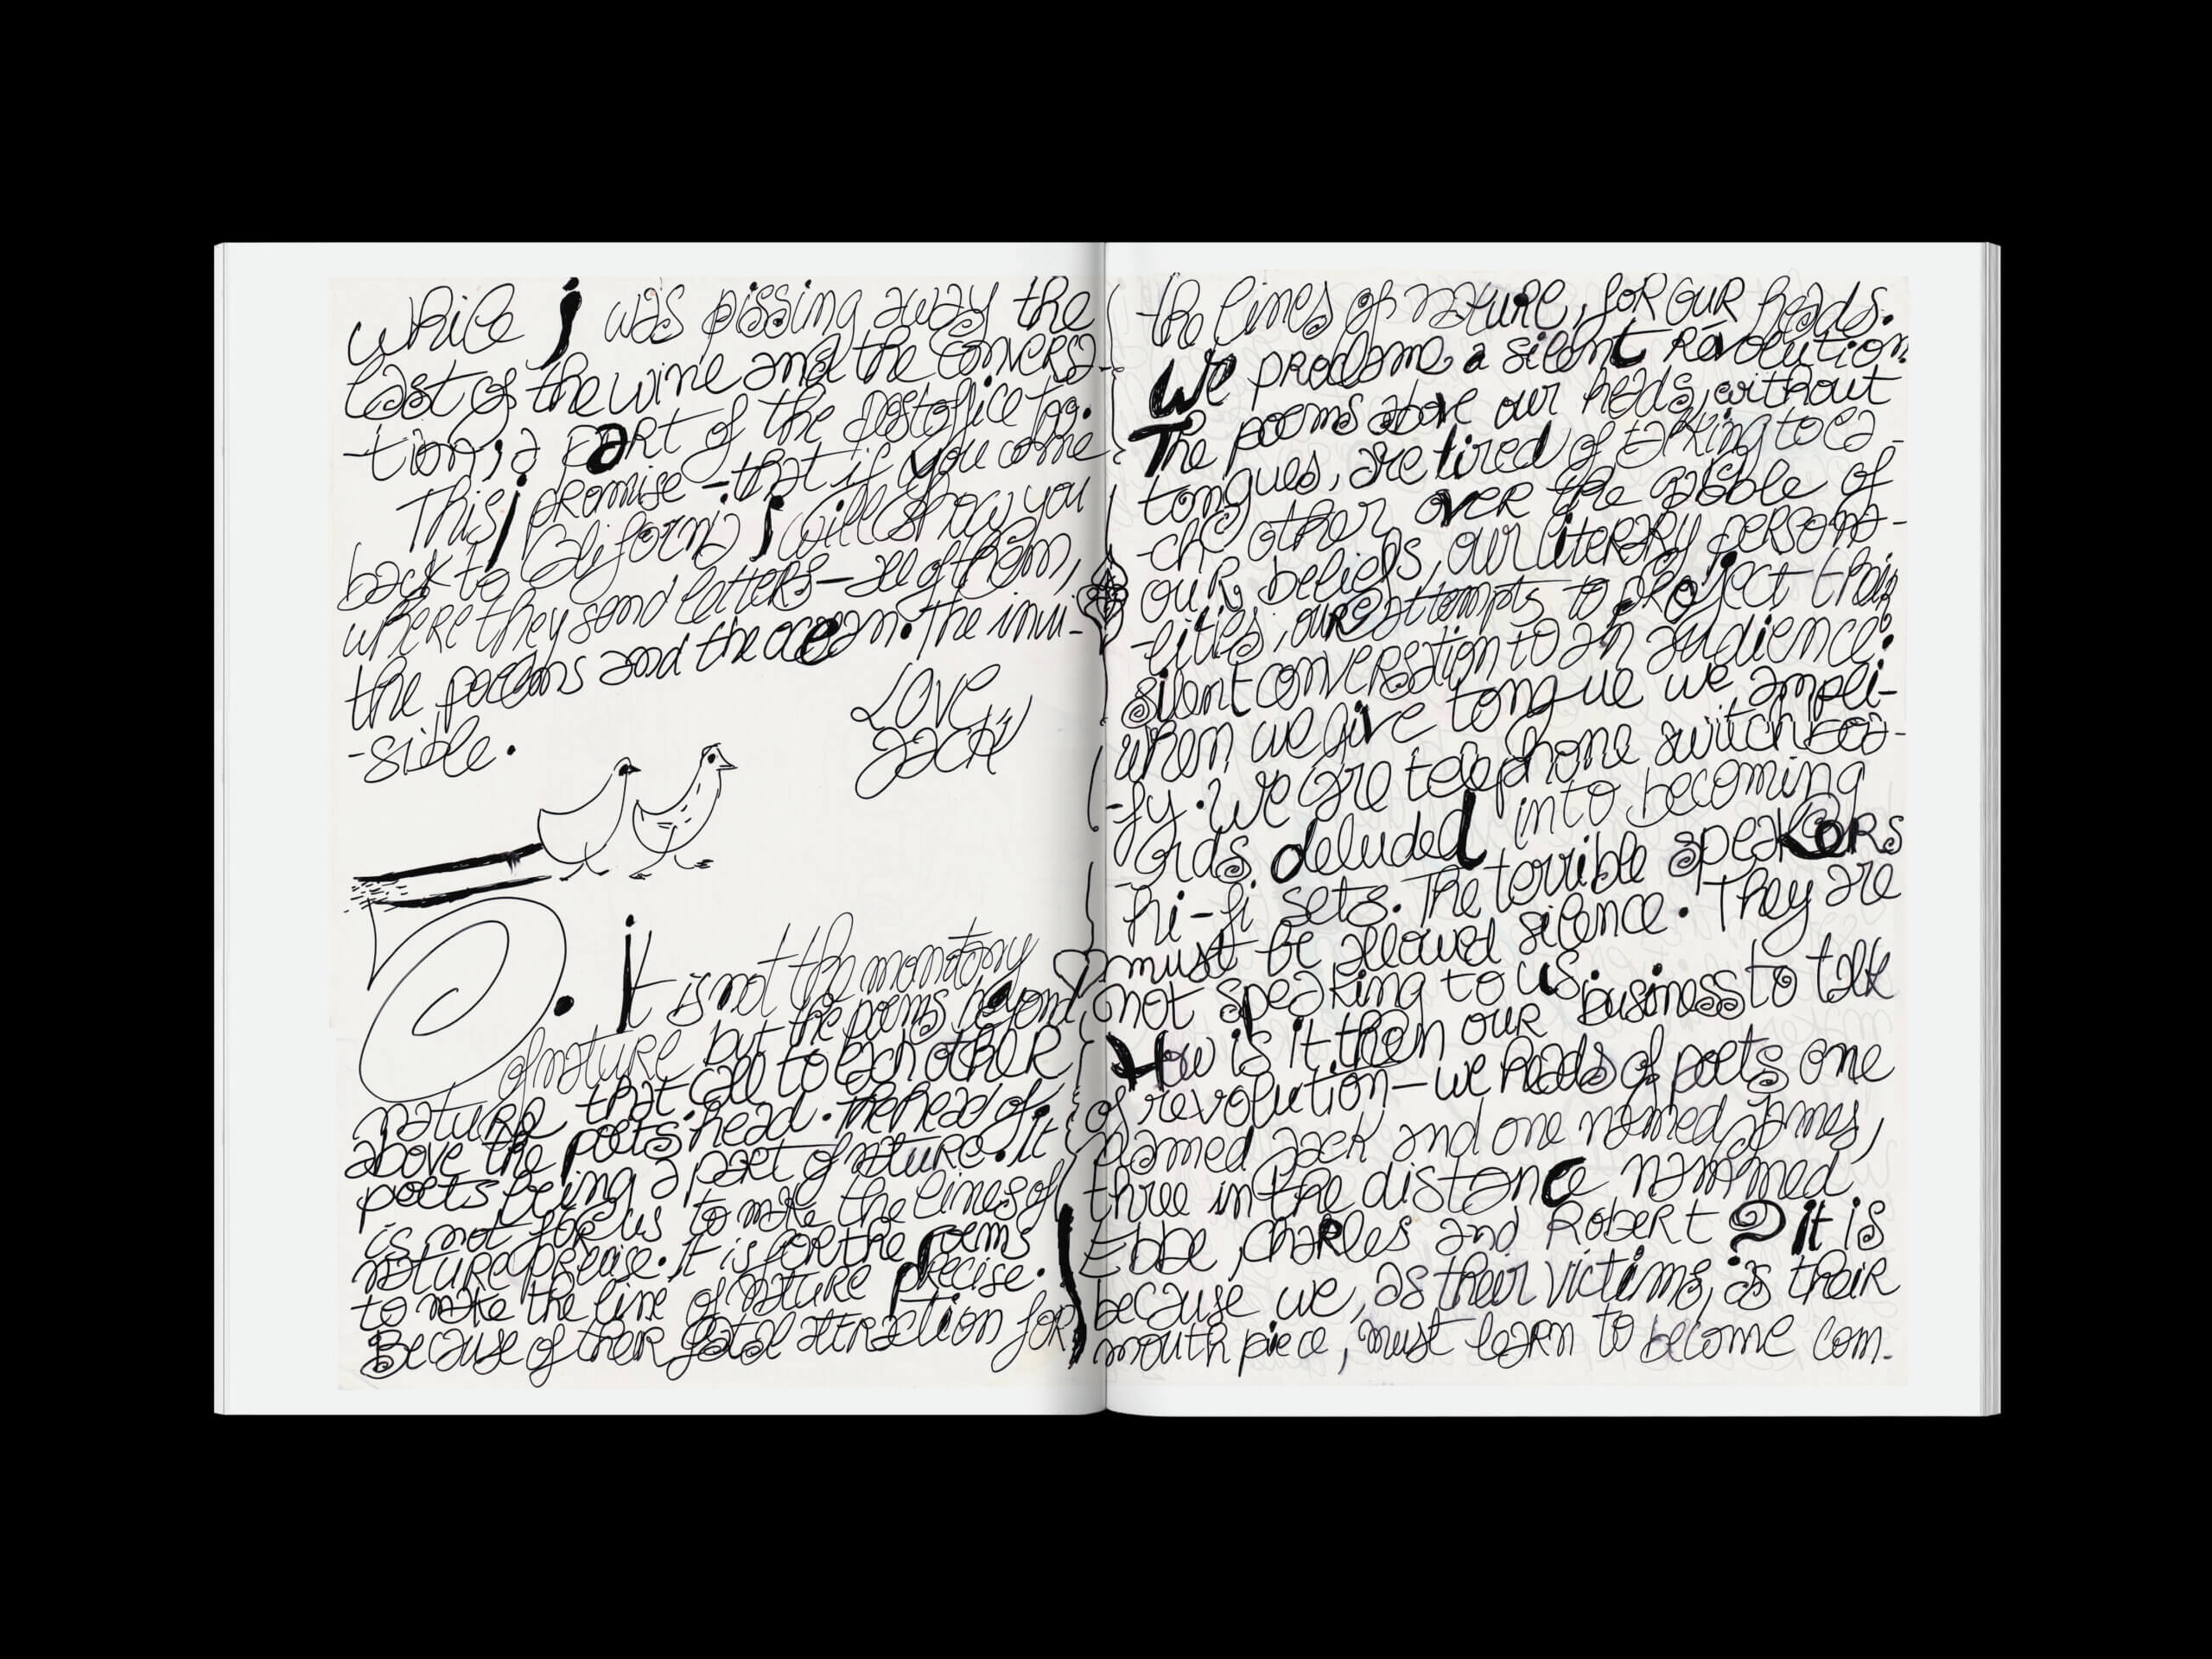 while i was pissing away the
last of the wine and the conversa-
-tion, a part of the postoffice too.
This i promise - that if you come
back to California i will show you
where they send letters — all of them,
the poems and the ocean. The invi-
-sible.
Love,
Jack
5. it is not the monotony
of nature but the poems beyond
nature that call to each other
above the poets' head. The head of
poets being a part of nature. It
is not for us to make the lines of
nature precise. It is for the poems
to make the line of nature precise.
Because of their fatal attraction for
the lines of nature, for our heads.
We proclame a silent revolution.
The poems above our heads, without
tongues, are tired of talking to ea-
-ch other over the gabble of
our beliefs, our literary persona-
-lities, our attempts to project their
silent conversation to an audience.
when we give tongue we ampli-
-fy. We are telephone switch boa-
-rds deluded into becoming
hi-fi sets. The terrible speakers
must be allowed silence. They are
not speaking to us.
How is it then our business to talk
of revolution — we heads of poets one
named Jack and one named James,
three in the distance nammed
Ebbe, Charles and Robert? it is
because we, as their victims, as their
mouth piece, must learn to become com-